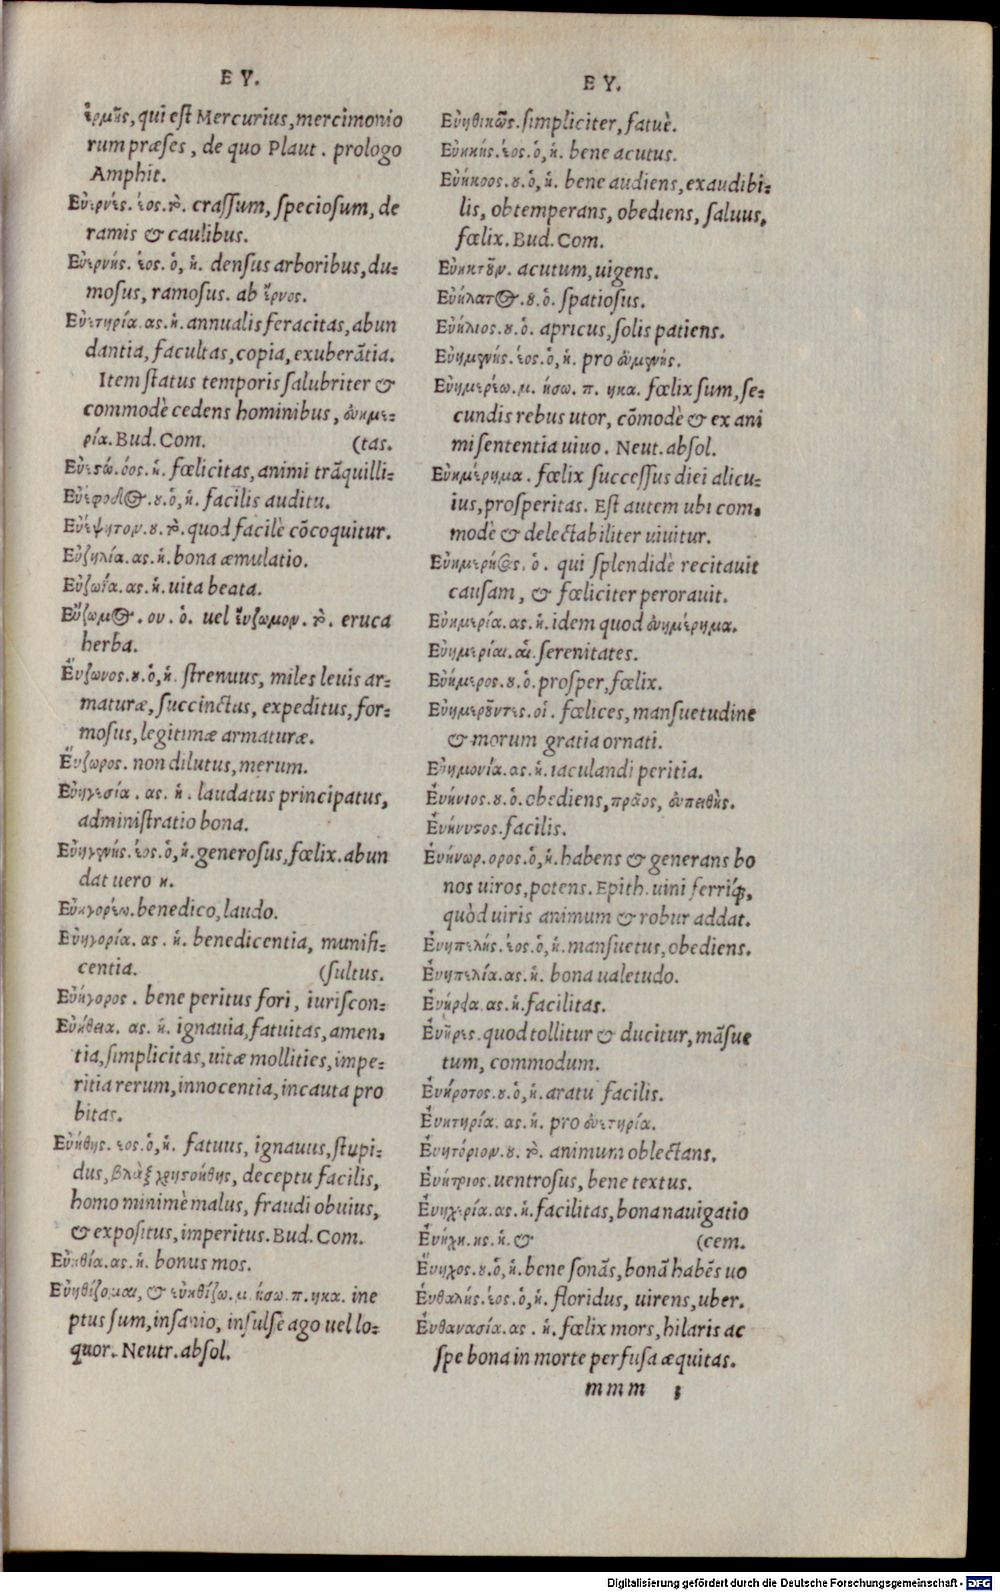 E Y.
ἑρμῆς, qui est Mercurius, mercimonio
rum præses, de quo Plaut. prologo
Amphit.
Εὐερνές. έος. τὸ. crassum, speciosum, de
ramis & caulibus.
Εὐερνής. έος. ὁ, ἡ. densus arboribus, du-
mosus, ramosus. ab ἔρνος.
Εὐετηρία. ας. ἡ. annualis feracitas, abun
dantia, facultas, copia, exuberãtia.
Item status temporis salubriter &
commodè cedens hominibus, εὐημε-
ρία. Bud. Com. (tas.
Εὐεστώ. όος. ἡ. fœlicitas, animi trãquilli-
Εὐέφοδος. ου. ὁ, ἡ. facilis auditu.
Εὐέψητον. ου. τὸ. quod facilè cõcoquitur.
Εὐζηλία. ας. ἡ. bona æmulatio.
Εὐζωΐα. ας. ἡ. uita beata.
Εὔζωμος. ου. ὁ. uel ἔυζωμον. τὸ. eruca
herba.
Ἔυζωνος. ου. ὁ, ἡ. strenuus, miles leuis ar-
maturæ, succinctus, expeditus, for-
mosus, legitimæ armaturæ.
Ἔυζωρος. non dilutus, merum.
Εὐηγεσία. ας. ἡ. laudatus principatus,
administratio bona.
Εὐηγενής. έος. ὁ, ἡ. generosus, fœlix. abun
dat uero η.
Εὐηγορέω. benedico, laudo.
Εὐηγορία. ας. ἡ. benedicentia, munifi-
centia. (sultus.
Εὐήγορος. bene peritus fori, iuriscon-
Εὐήθεια. ας. ἡ. ignauia, fatuitas, amen-
tia, simplicitas, uitæ mollities, impe-
ritia rerum, innocentia, incauta pro
bitas.
Εὐήθης. εος. ὁ, ἡ. fatuus, ignauus, stupi-
dus, βλὰξ χρηστοήθης, deceptu facilis,
homo minimè malus, fraudi obuius,
& expositus, imperitus. Bud. Com.
Εὐηθία. ας. ἡ. bonus mos.
Εὐηθίζομαι, & εὐηθίζω. μ. ήσω. π. ηκα. ine
ptus sum, insanio, insulsè ago uel lo-
quor. Neutr. absol.
E Y.
Εὐηθικῶς. simpliciter, fatuè.
Εὐηκής. έος. ὁ, ἡ. bene acutus.
Εὐήκοος. ου. ὁ, ἡ. bene audiens, exaudibi-
lis, obtemperans, obediens, saluus,
fœlix. Bud. Com.
Εὐηκτοῦν. acutum, uigens.
Εὐήλατος. ου. ὁ. spatiosus.
Εὐήλιος. ου. ὁ. apricus, solis patiens.
Εὐημενής. έος. ὁ, ἡ. pro εὐμενής.
Εὐημερέω. μ. ήσω. π. ηκα. fœlix sum, se-
cundis rebus utor, cõmodè & ex ani
mi sententia uiuo. Neut. absol.
Εὐημέρημα. fœlix successus diei alicu-
ius, prosperitas. Est autem ubi com-
modè & delectabiliter uiuitur.
Εὐημερήσας. ὁ. qui splendidè recitauit
causam, & fœliciter perorauit.
Εὐημερία. ας. ἡ. idem quod εὐημέρημα.
Εὐημερίαι. αἱ. serenitates.
Εὐήμερος. ου. ὁ. prosper, fœlix.
Εὐημεροῦντες. οἱ. fœlices, mansuetudine
& morum gratia ornati.
Εὐημονία. ας. ἡ. iaculandi peritia.
Ἐυήνιος. ου. ὁ. obediens, πρᾶος, εὐπειθὴς.
Ἐυήνυτος. facilis.
Ἐυήνωρ. ορος. ὁ, ἡ. habens & generans bo
nos uiros, potens. Epith. uini ferriq́;,
quòd uiris animum & robur addat.
Ἐυηπελής. έος. ὁ, ἡ. mansuetus, obediens.
Ἐυηπελία. ας. ἡ. bona ualetudo.
Ἐυήρεια. ας. ἡ. facilitas.
Ἐυῆρες. quod tollitur & ducitur, mãsue
tum, commodum.
Ἐυήροτος. ου. ὁ, ἡ. aratu facilis.
Ἐυητηρία. ας. ἡ. pro εὐετηρία.
Ἐυητόριον. ου. τὸ. animum oblectans.
Ἐυήτριος. uentrosus, bene textus.
Ἐυηχερία. ας. ἡ. facilitas, bona nauigatio
Ἐυήχη. ης. ἡ. & (cem.
Ἔυηχος. ου. ὁ, ἡ. bene sonãs, bonã habẽs uo
Ἐυθαλής. έος. ὁ, ἡ. floridus, uirens, uber.
Ἐυθανασία. ας. ἡ. fœlix mors, hilaris ac
spe bona in morte perfusa æquitas.
mmm 3
Digitalisierung gefördert durch die Deutsche Forschungsgemeinschaft - DFG